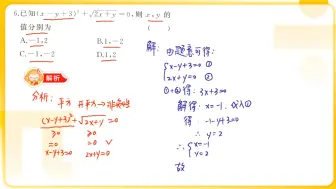 6.已知(x-y+3)²+√2x+y=0,则x,y的
值分别为 ( )
A.-1,2 B.1,-2
C.-1,-2 D.1,2
解析
分析:平方 开平方→非负性
(x-y+3)²+√2x+y=0
≥0 ≥0
=0 =0 ✓
x-y+3=0 2x+y=0
解:由题意可得:
{x-y+3=0 ①
2x+y=0 ②
①+②得:3x+3=0
解得:x=-1.代入①
得:-1-y+3=0
∴y=2
∴{x=-1
y=2
故